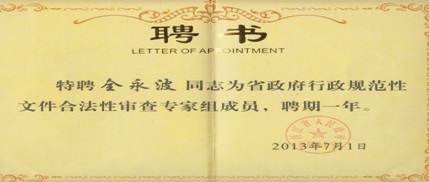 聘书
LETTER OF APPOINTMENT
特聘全永波同志为省政府行政规范性
文件合法性审查专家组成员，聘期一年。
2013年7月1日